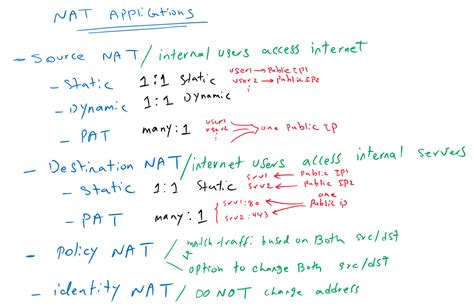 NAT Applications
- Source NAT / internal users access internet
- Static 1:1 Static user1 → Public IP1
user2 → Public IP2
- Dynamic 1:1 Dynamic
- PAT many:1 user1 user2 → one Public IP
- Destination NAT / internet users access internal servers
- Static 1:1 Static srv1 ← Public IP1
srv2 ← Public IP2
- PAT many:1 srv1:80 srv2:443 ← one Public ip
- Policy NAT / match traffi based on Both src/dst
option to change Both src/dst
- identity NAT / DO NOT change address